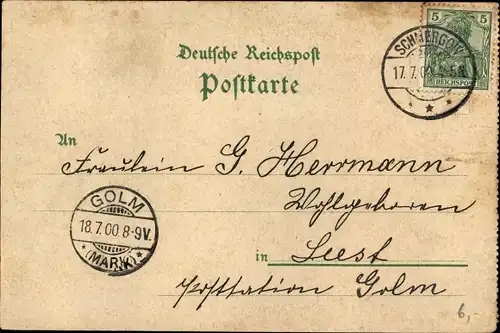 5 5
REICHSPOST
SCHMERGOW
17.7.00
Deutsche Reichspost
Postkarte
An
Fräulein G. Herrmann
Wohlgeboren
in Leest
Poststation Golm
GOLM
18.7.00.8-9V.
(MARK)
6,-